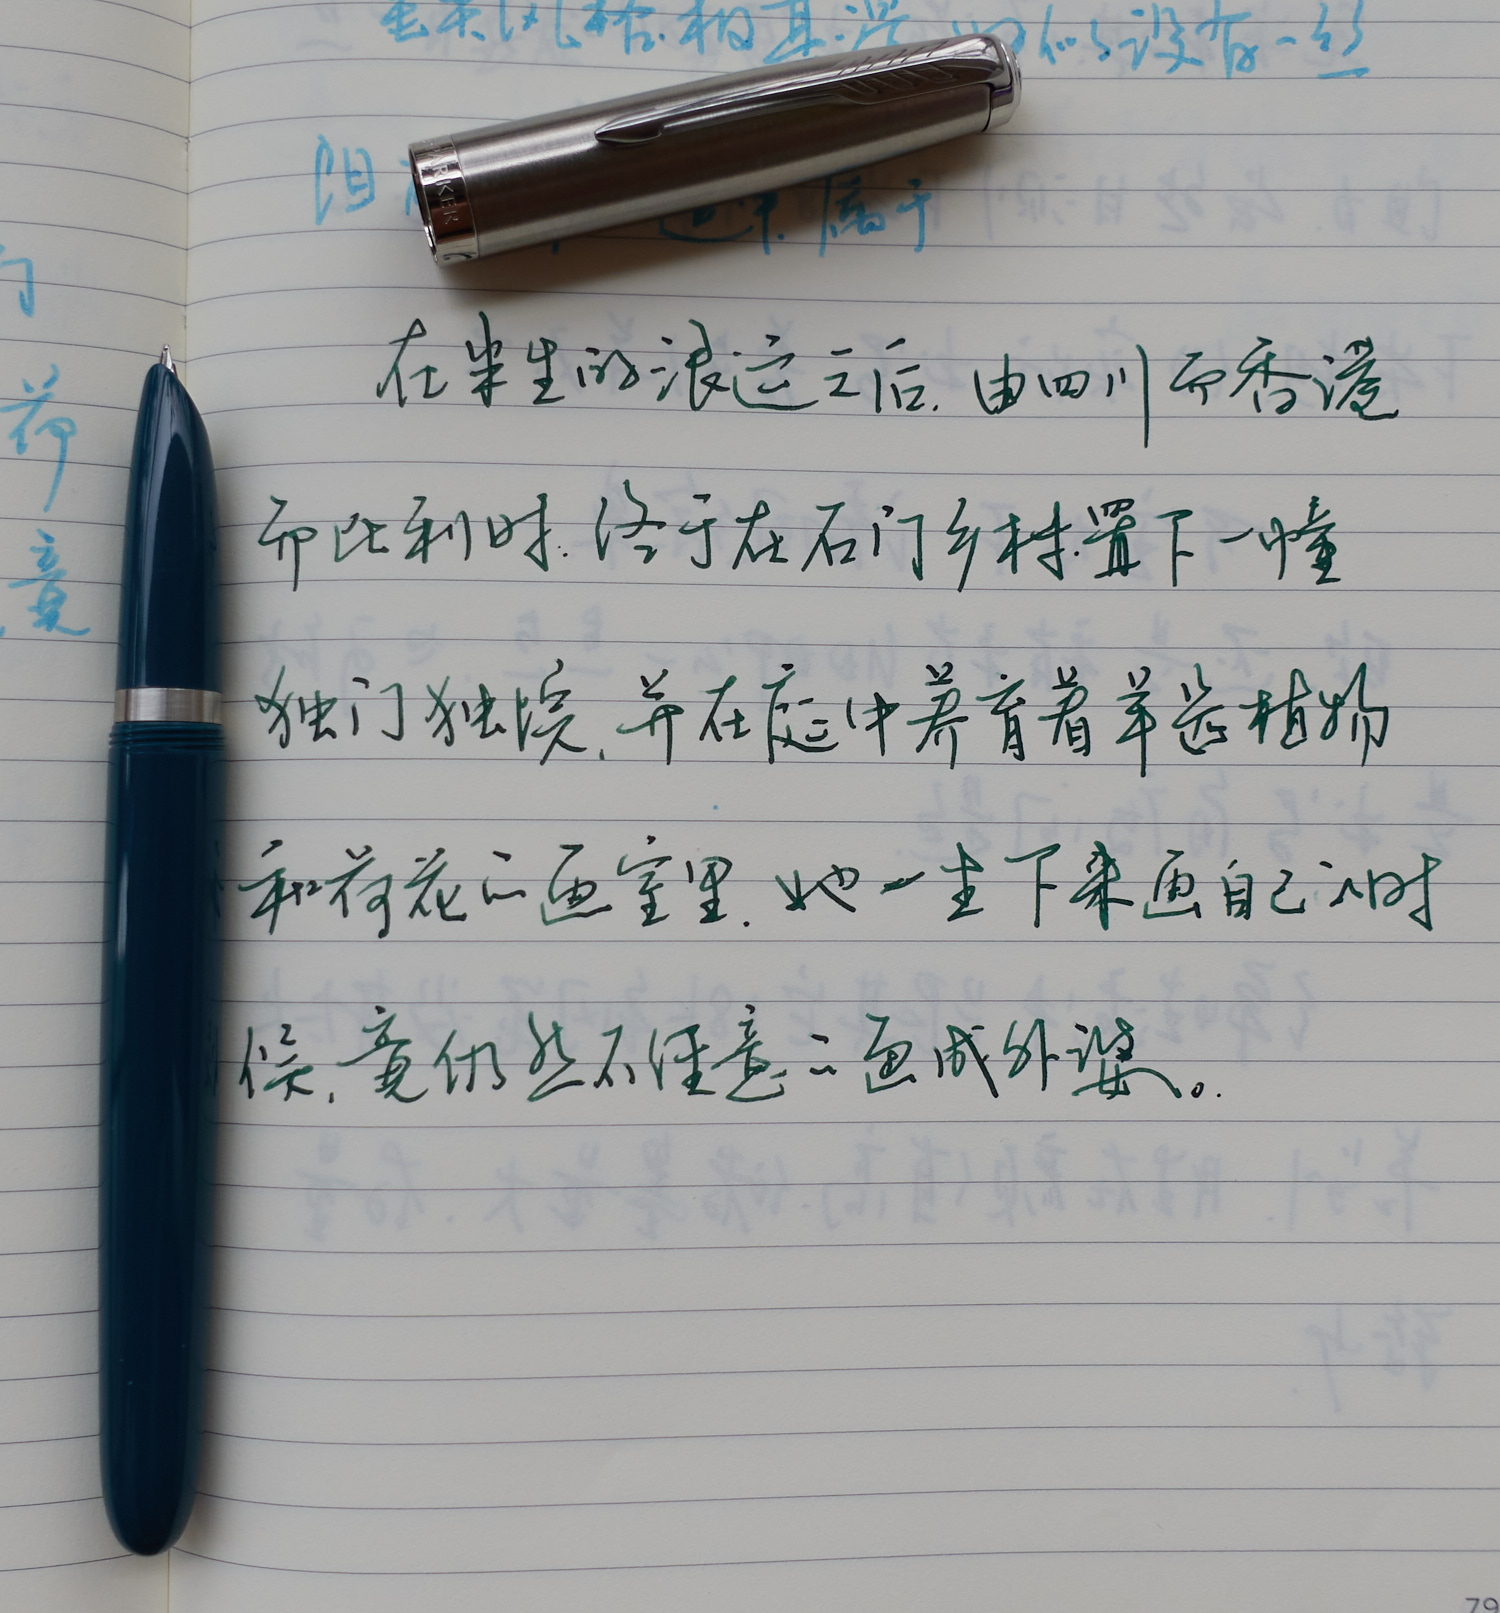 风格.相互 没有一丝
属于
荷
在半生的浪迹之后.由四川而香港
而比利时.终于在石门乡村.置下一幢
独门独院,并在庭中养育着羊齿植物
和荷花的画室里.她一坐下来画自己的时
候,竟仍然不经意的画成外婆。
PARKER
79